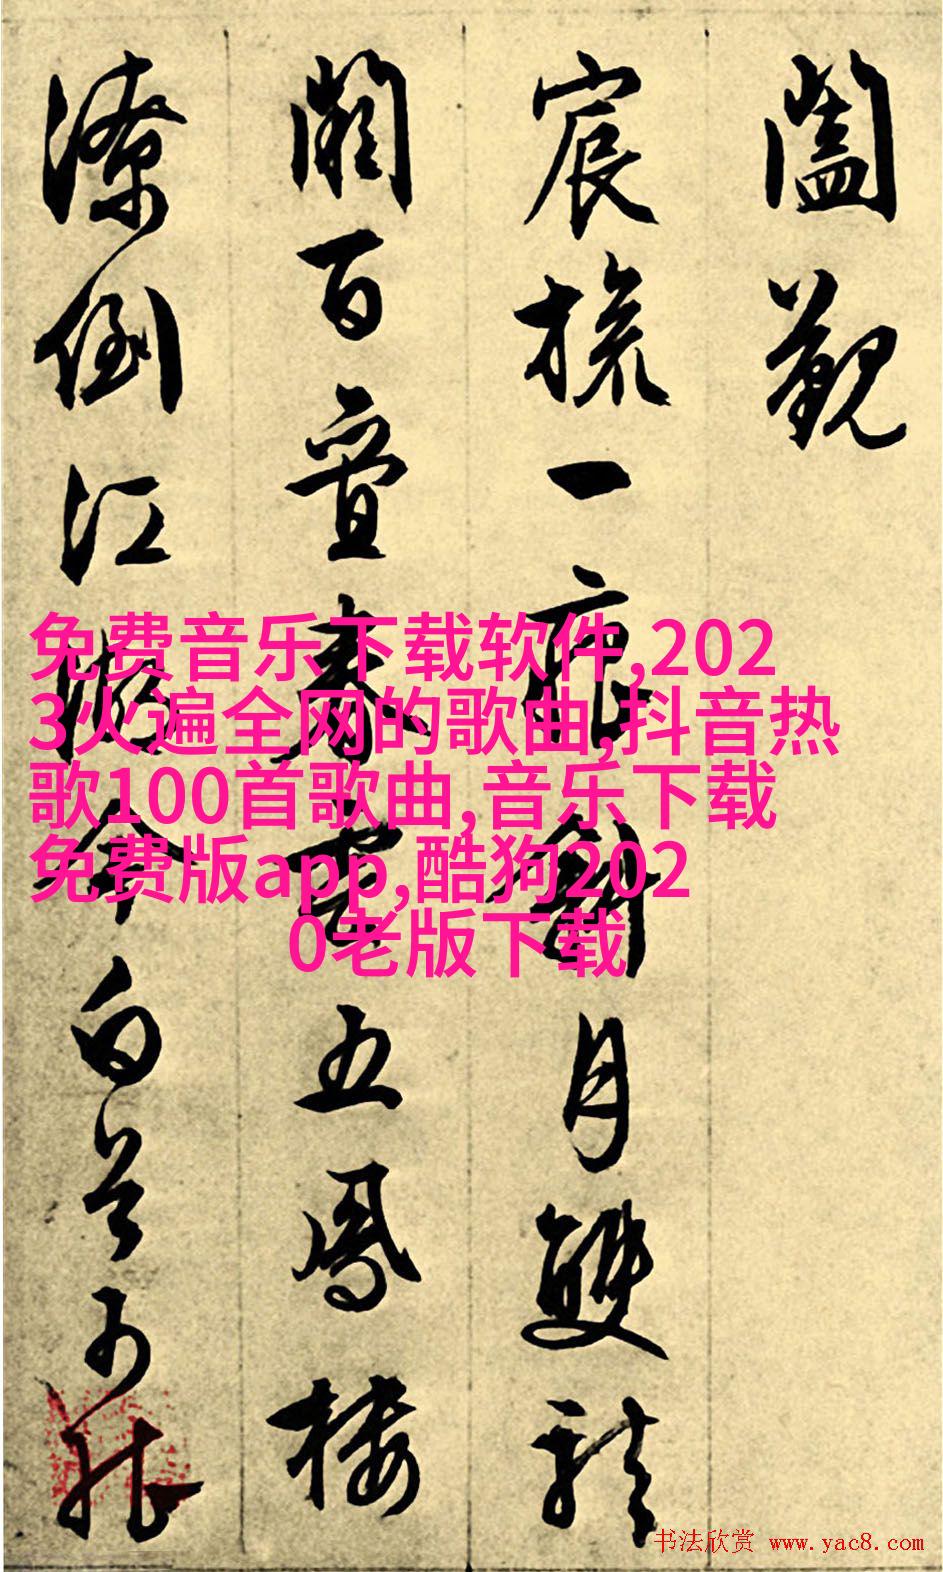 闔觀
宸旒一痕新月雙龍
闕百疊春雲五鳳樓
潦倒江湖今白首
免费音乐下载软件,202
3火遍全网的歌曲,抖音热
歌100首歌曲,音乐下载
免费版app,酷狗202
0老版下载
书法欣赏 www.yac8.com